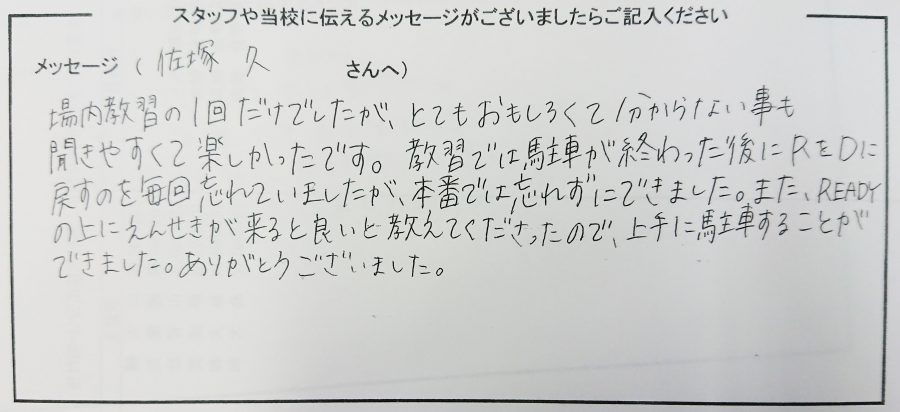 スタッフや当校に伝えるメッセージがございましたらご記入ください
メッセージ（ 佐塚 久 さんへ）
場内教習の1回だけでしたが、とてもおもしろくて分からない事も
聞きやすくて楽しかったです。教習では駐車が終わった後にRをDに
戻すのを毎回忘れていましたが、本番では忘れずにできました。また、READY
の上にえんせきが来ると良いと教えてくださったので、上手に駐車することが
できました。ありがとうございました。